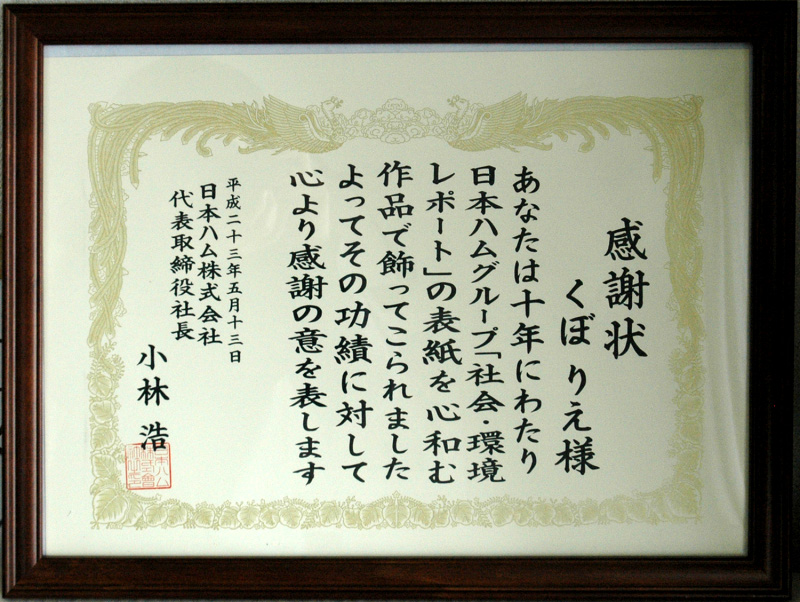 感謝状
くぼ りえ様
あなたは十年にわたり
日本ハムグループ「社会・環境
レポート」の表紙を心和む
作品で飾ってこられました
よってその功績に対して
心より感謝の意を表します
平成二十三年五月十三日
日本ハム株式会社
代表取締役社長
小林 浩